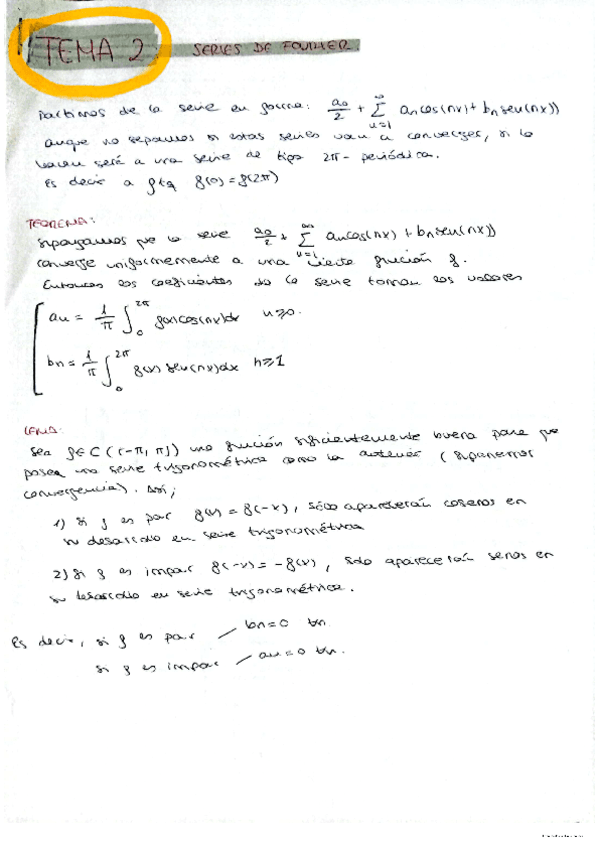 TEMA 2 SERIES DE FOURIER
Partimos de la serie en forma: a₀/2 + ∑_{n=1}^{∞} aₙcos(nx) + bₙsen(nx))
aunque no sepamos si estas series van a converger, si lo
hacen será a una serie de tipo 2π-periódica.
Es decir a f tq f(0)=f(2π)
TEOREMA:
Supongamos que la serie a₀/2 + ∑_{n=1}^{∞} aₙcos(nx) + bₙsen(nx))
converge uniformemente a una cierta función f.
Entonces los coeficientes de la serie toman los valores
aₙ = 1/π ∫₀^{2π} f(x)cos(nx)dx n≥0.
bₙ = 1/π ∫₀^{2π} f(x) sen(nx)dx n≥1
LEMA:
Sea f∈C([-π, π]) una función suficientemente buena para que
posea una serie trigonométrica como la anterior (suponemos
convergencia). Así;
1) Si f es par f(x) = f(-x), sólo aparecerán cosenos en
su desarrollo en serie trigonométrica
2) Si f es impar f(-x) = -f(x), solo aparecerán senos en
su desarrollo en serie trigonométrica.
Es decir, si f es par — bₙ=0 ∀n.
si f es impar — aₙ=0 ∀n.